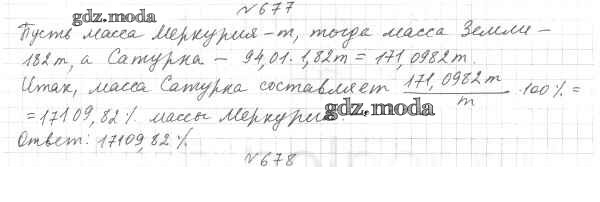 №677
gdz.moda
Пусть масса Меркурия - m, тогда масса Земли -
182m, а Сатурна - 94,01 · 1,82m = 171,0982m.
Итак, масса Сатурна составляет 171,0982m / m · 100% =
= 17109,82% массы Меркурия.
gdz.moda
Ответ: 17109,82%.
№678